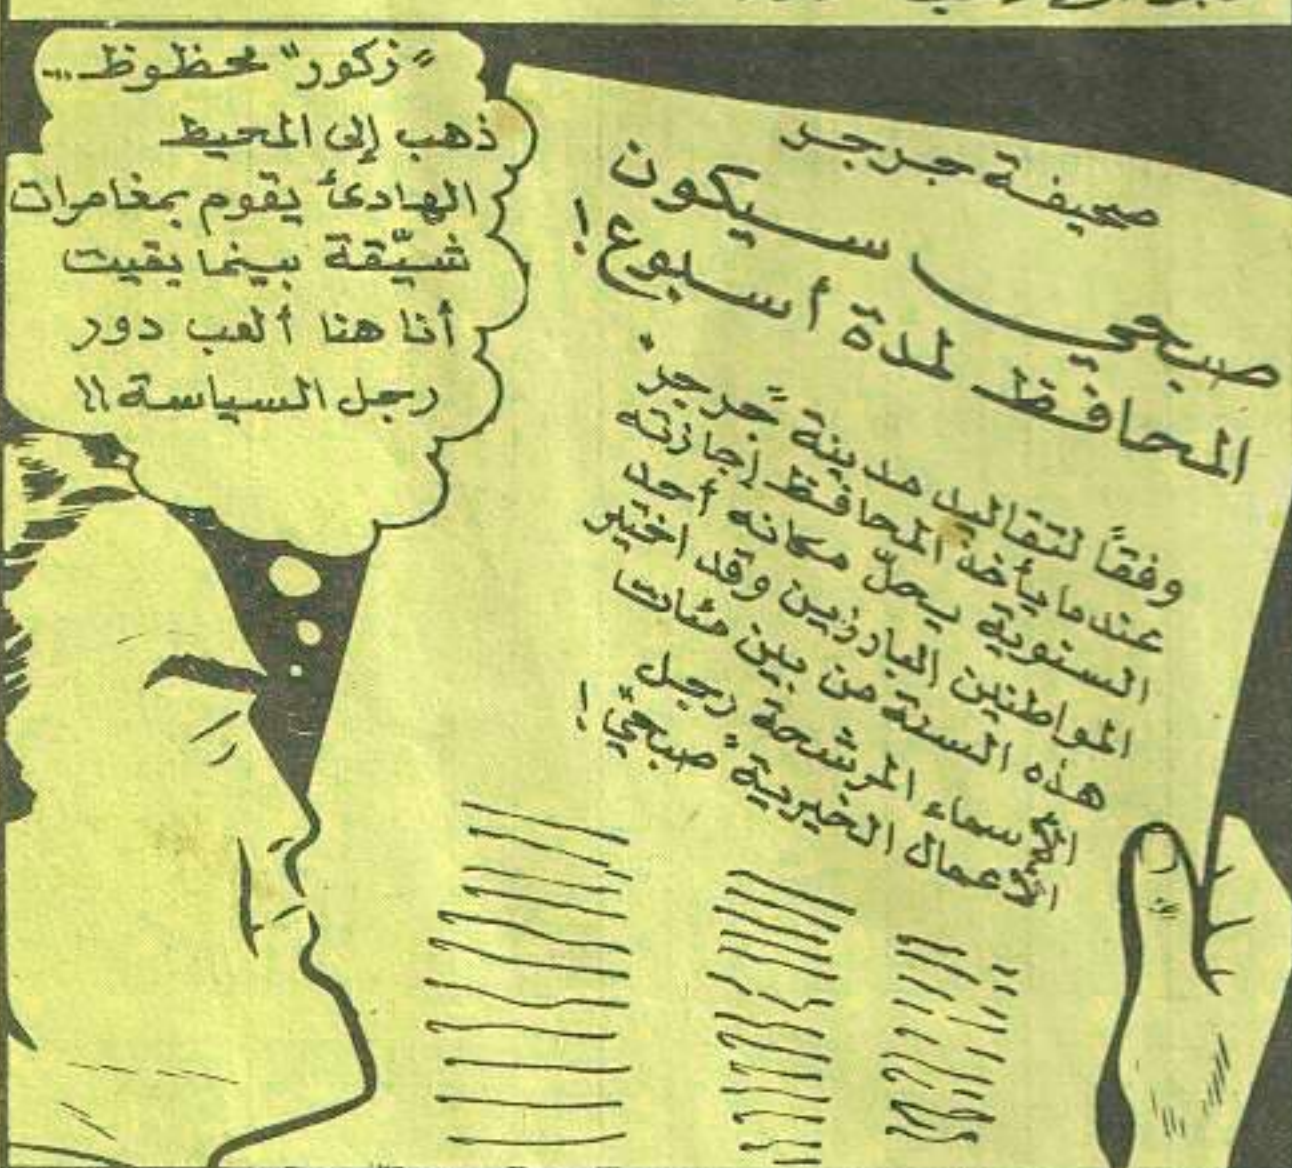 "زكور" محظوظ...
ذهب إلى المحيط
الهادئ يقوم بمغامرات
شيّقة بينما بقيت
أنا هنا ألعب دور
رجل السياسة!!
صحيفة جرجر
صبحي سيكون
المحافظ لمدة أسبوع!
وفقاً لتقاليد مدينة "جرجر"
عندما يأخذ المحافظ إجازته
السنوية يحلّ مكانه أحد
المواطنين البارزين وقد اختير
هذه السنة من بين مئات
الأسماء المرشحة رجل
الأعمال الخيرية "صبحي"!